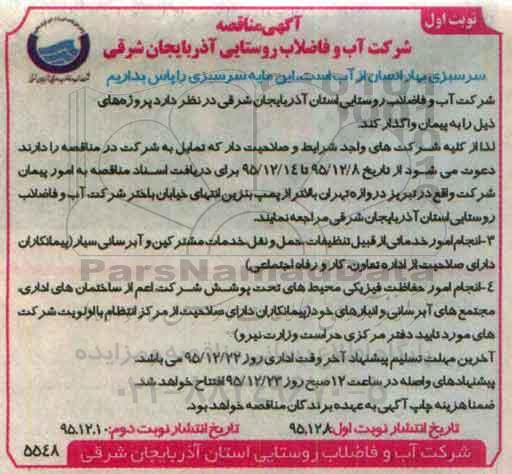 نوبت اول
آگهی مناقصه
شرکت آب و فاضلاب روستایی آذربایجان شرقی
سرسبزی بهار انسان از آب است، این مایه سرسبزی را پاس بداریم
شرکت آب و فاضلاب روستایی استان آذربایجان شرقی در نظر دارد پروژه‌های
ذیل را به پیمان واگذار کند.
لذا از کلیه شرکت های واجد شرایط و صلاحیت دار که تمایل به شرکت در مناقصه را دارند
دعوت می شود از تاریخ ۹۵/۱۲/۸ تا ۹۵/۱۲/۱۴ برای دریافت اسناد مناقصه به امور پیمان
شرکت واقع در تبریز دروازه تهران بالاتر از پمپ بنزین انتهای خیابان باختر شرکت آب و فاضلاب
روستایی استان آذربایجان شرقی مراجعه نمایند.
۳-انجام امور خدماتی از قبیل تنظیفات، حمل و نقل، خدمات مشترکین و آبرسانی سیار (پیمانکاران
دارای صلاحیت از اداره تعاون، کار و رفاه اجتماعی)
۴-انجام امور حفاظت فیزیکی محیط های تحت پوشش شرکت اعم از ساختمان های اداری،
مجتمع های آبرسانی و انبارهای خود (پیمانکاران دارای صلاحیت از مرکز انتظام با اولویت شرکت
های مورد تایید دفتر مرکزی حراست وزارت نیرو)
آخرین مهلت تسلیم پیشنهاد آخر وقت اداری روز ۹۵/۱۲/۲۲ می باشد.
پیشنهادهای واصله در ساعت ۱۲ صبح روز ۹۵/۱۲/۲۳ افتتاح خواهد شد.
ضمنا هزینه چاپ آگهی به عهده برندگان مناقصه خواهد بود.
تاریخ انتشار نوبت اول: ۹۵.۱۲.۸ تاریخ انتشار نوبت دوم: ۹۵.۱۲.۱۰
شرکت آب و فاضلاب روستایی استان آذربایجان شرقی ۵۵۴۸
ParsNamadData